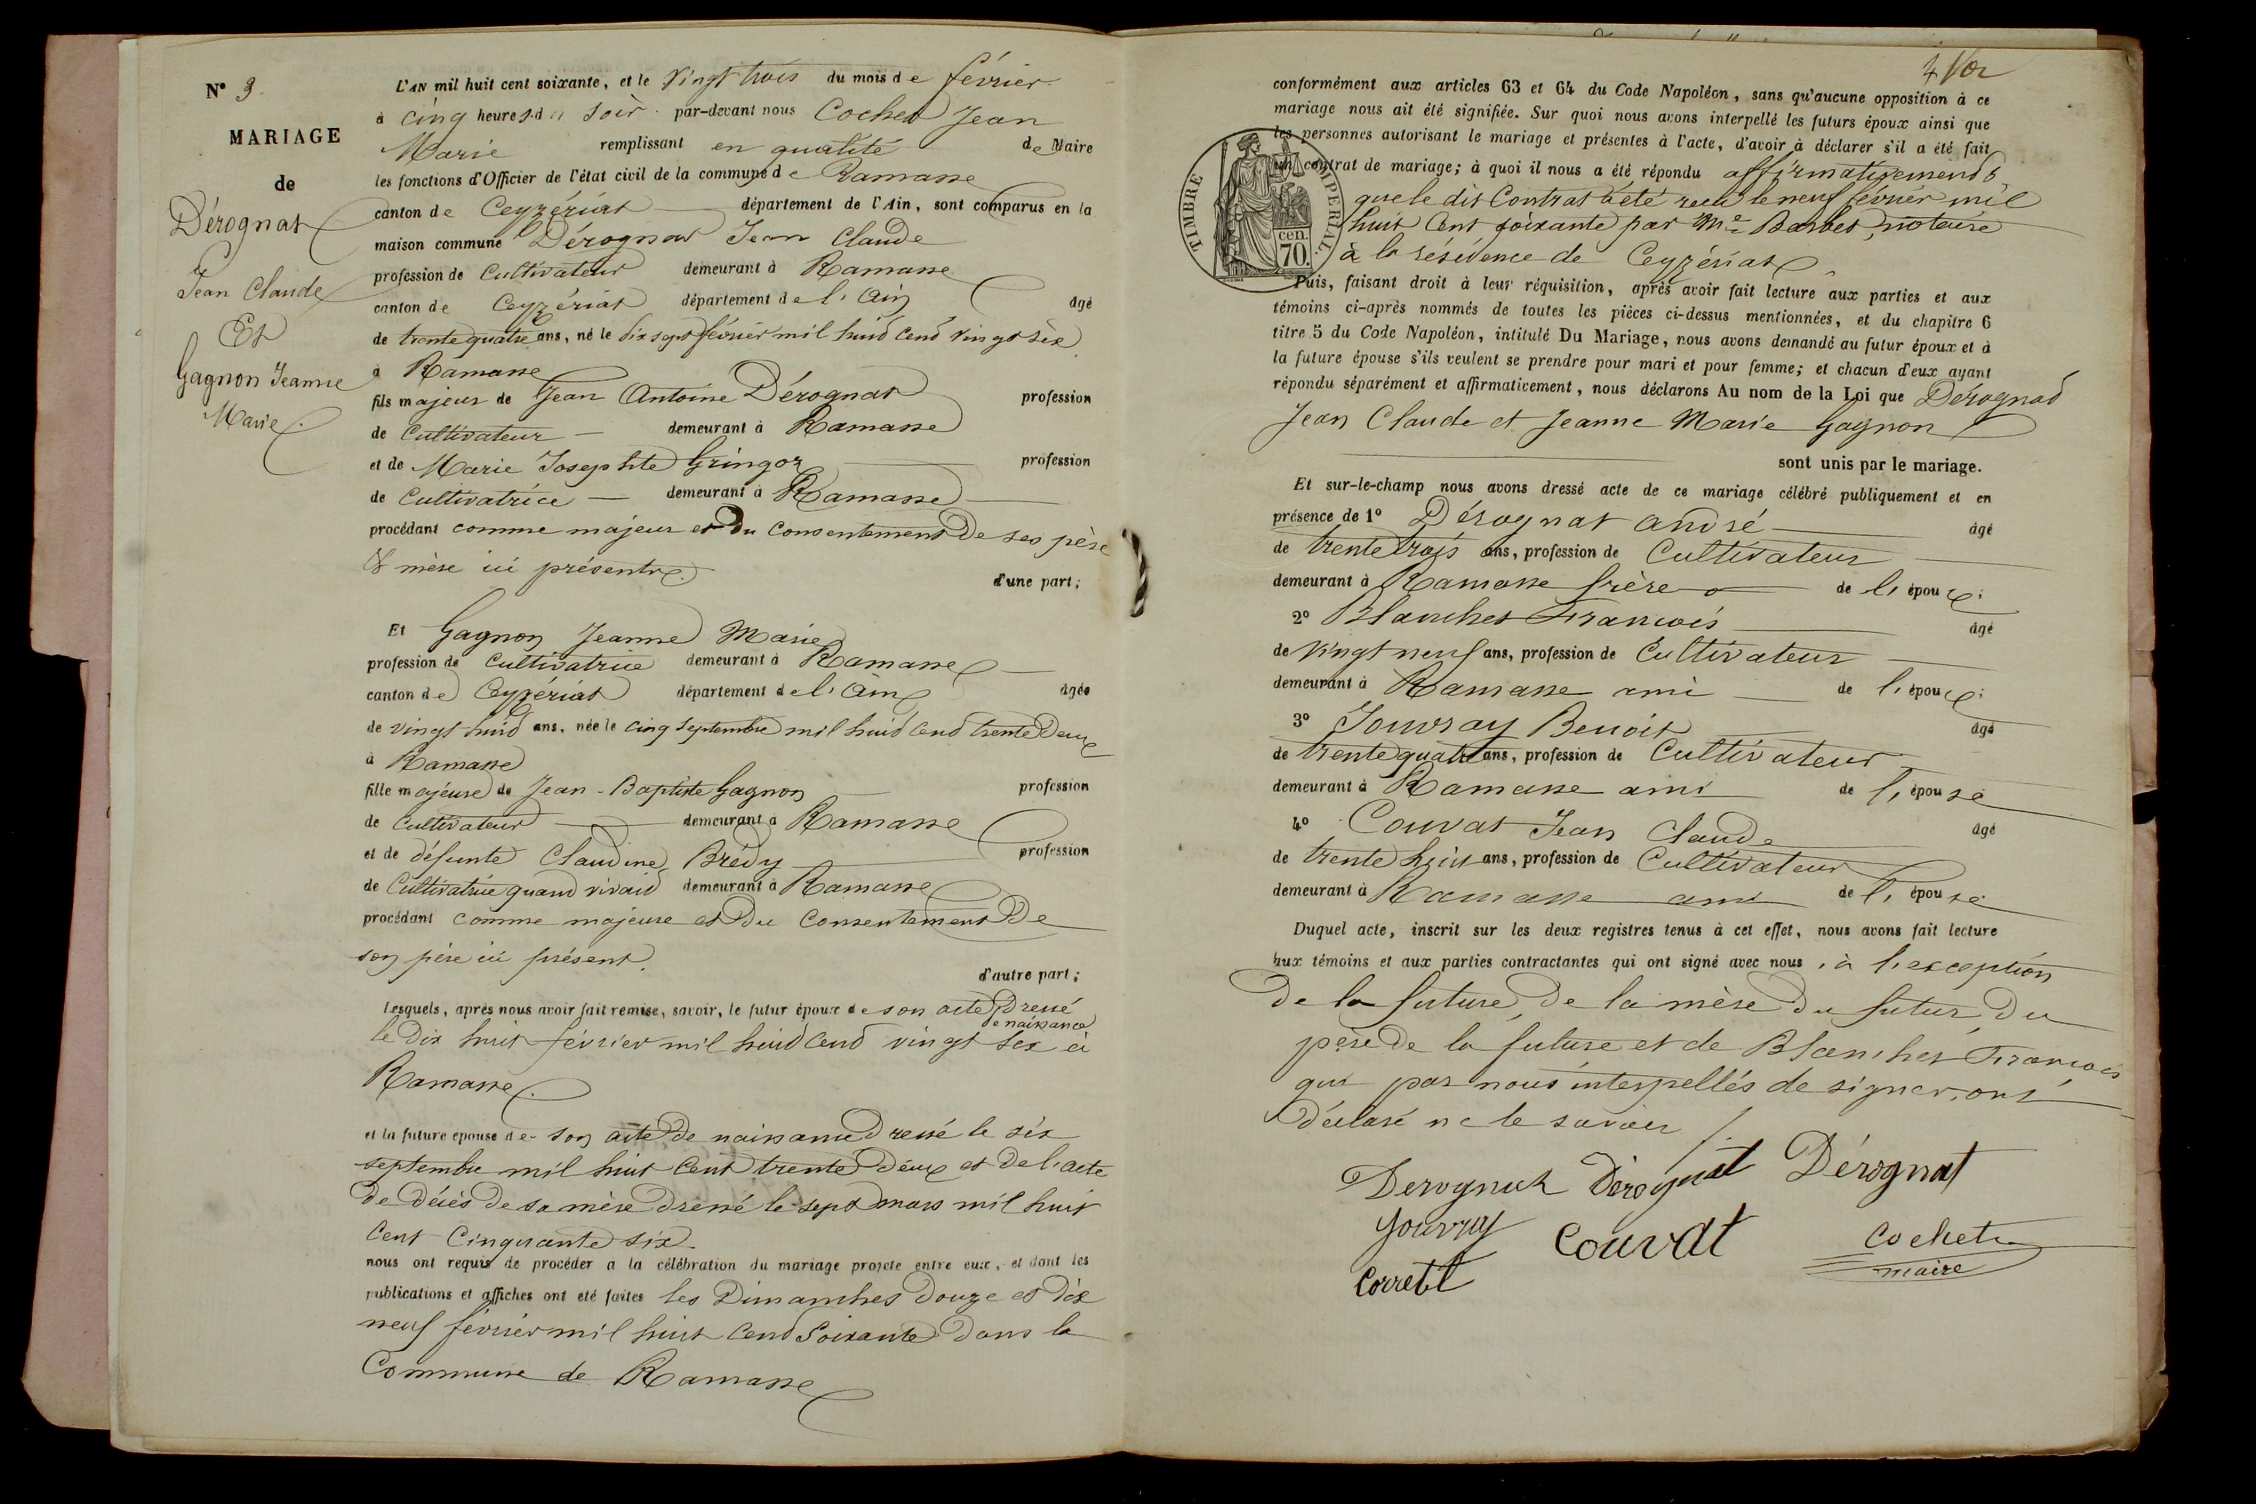 N° 3
MARIAGE
de
Dérognat
Jean Claude
Et
Gagnon Jeanne
Marie
L'AN mil huit cent soixante, et le vingt trois du mois de février
à cinq heures du soir par-devant nous Cochet Jean
Marie remplissant en qualité de Maire
les fonctions d'Officier de l'état civil de la commune de Ramasse
canton de Ceyzériat département de l'Ain, sont comparus en la
maison commune Dérognat Jean Claude
profession de Cultivateur demeurant à Ramasse
canton de Ceyzériat département de l'Ain âgé
de trente quatre ans, né le dix sept février mil huit cent vingt six
à Ramasse
fils majeur de Jean Antoine Dérognat profession
de Cultivateur demeurant à Ramasse
et de Marie Josephte Gringoz profession
de Cultivatrice demeurant à Ramasse
procédant comme majeur et du consentement de ses père
& mère ici présents. d'une part;
Et Gagnon Jeanne Marie
profession de Cultivatrice demeurant à Ramasse
canton de Ceyzériat département de l'Ain âgée
de vingt huit ans, née le cinq septembre mil huit cent trente deux
à Ramasse
fille majeure de Jean-Baptiste Gagnon profession
de Cultivateur demeurant à Ramasse
et de défunte Claudine Brédy profession
de Cultivatrice quand vivait demeurant à Ramasse
procédant comme majeure et du consentement de
son père ici présent. d'autre part;
Lesquels, après nous avoir fait remise, savoir, le futur époux de son acte de naissance dressé
le dix huit février mil huit cent vingt six à
Ramasse.
et la future épouse de son acte de naissance dressé le six
septembre mil huit cent trente deux et de l'acte
de décès de sa mère dressé le sept mars mil huit
cent cinquante six
nous ont requis de procéder à la célébration du mariage projeté entre eux, et dont les
publications et affiches ont été faites les Dimanches douze et dix
neuf février mil huit cent soixante dans la
Commune de Ramasse
conformément aux articles 63 et 64 du Code Napoléon, sans qu'aucune opposition à ce
mariage nous ait été signifiée. Sur quoi nous avons interpellé les futurs époux ainsi que
les personnes autorisant le mariage et présentes à l'acte, d'avoir à déclarer s'il a été fait
un contrat de mariage; à quoi il nous a été répondu affirmativement &
que le dit Contrat a été reçu le neuf février mil
huit cent soixante par Me Barbet, notaire
à la résidence de Ceyzériat
TIMBRE IMPERIAL
70 cen.
Puis, faisant droit à leur réquisition, après avoir fait lecture aux parties et aux
témoins ci-après nommés de toutes les pièces ci-dessus mentionnées, et du chapitre 6
titre 5 du Code Napoléon, intitulé Du Mariage, nous avons demandé au futur époux et à
la future épouse s'ils veulent se prendre pour mari et pour femme; et chacun d'eux ayant
répondu séparément et affirmativement, nous déclarons Au nom de la Loi que Dérognat
Jean Claude et Jeanne Marie Gagnon
sont unis par le mariage.
Et sur-le-champ nous avons dressé acte de ce mariage célébré publiquement et en
présence de 1° Dérognat André âgé
de trente trois ans, profession de Cultivateur
demeurant à Ramasse frère de l'époux;
2° Blanchet François âgé
de vingt neuf ans, profession de Cultivateur
demeurant à Ramasse ami de l'époux;
3° Jouvray Benoit âgé
de trente quatre ans, profession de Cultivateur
demeurant à Ramasse ami de l'épouse
4° Couvat Jean Claude âgé
de trente huit ans, profession de Cultivateur
demeurant à Ramasse ami de l'épouse
Duquel acte, inscrit sur les deux registres tenus à cet effet, nous avons fait lecture
aux témoins et aux parties contractantes qui ont signé avec nous, à l'exception
de la future, de la mère du futur, du
père de la future et de Blanchet François
qui par nous interpellés de signer, ont
déclaré ne le savoir
Derognat Dérognat Dérognat
Jouvray Couvat Cochet
maire